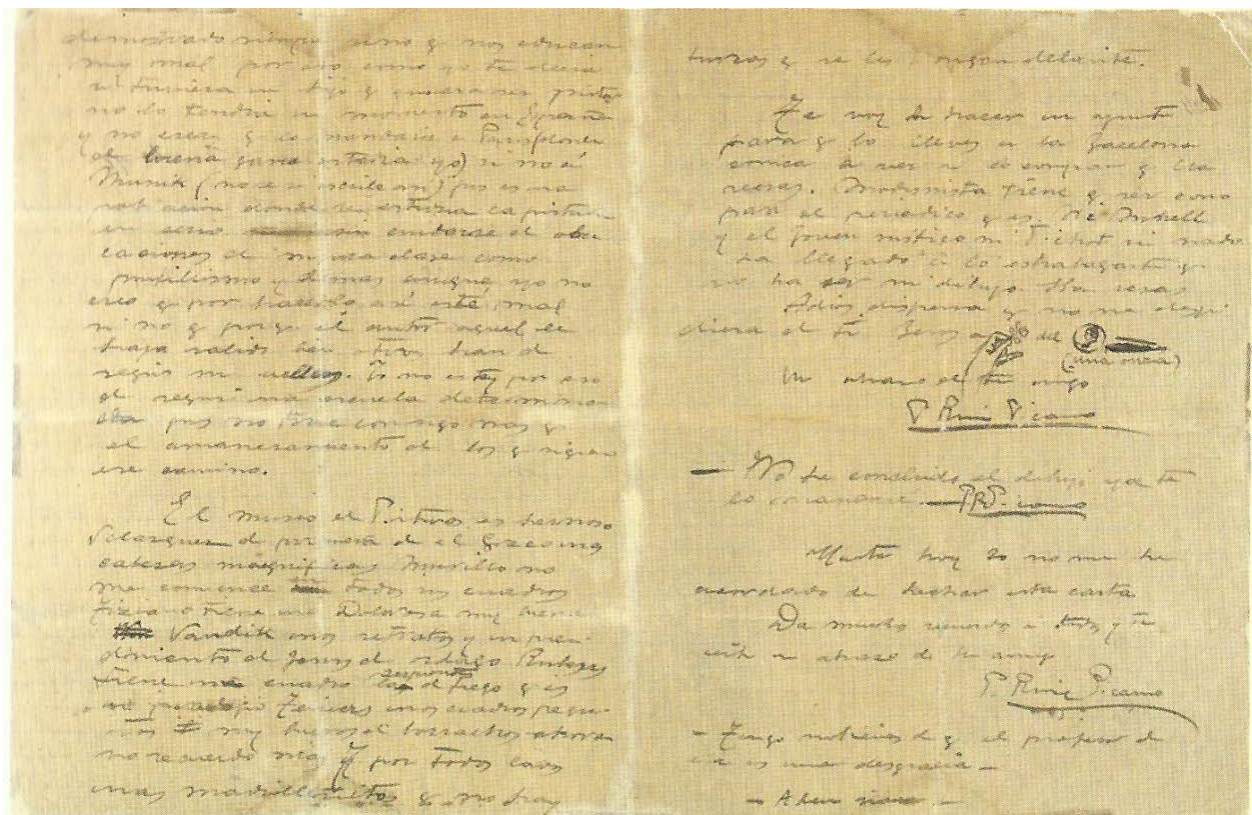 demostrado siempre sino q nos educan
muy mal por eso como yo te decia
si tuviera un hijo q quisiera ser pintor
no lo tendria un momento en España
y no creas q lo mandaria a Paris (donde
de buena gana estaria yo) si no a
Munik (no se si se escribe asi) pus es una
poblacion donde se estudia la pintura
en serio sin cuidarse de
de ninguna clase como
puntillismo y demas aunque yo no
creo q por hacerlo asi esté mal
si no q porqe el autor aquel le
haya salido bien otros han de
seguir sus uellas. Yo no estoy por eso
de seguir una escuela determina
da pus no trae consigo mas q
el amaneramiento de los q siguen
ese camino.
El museo de Pinturas es hermoso
Velazquez de primera de el Greco unas
cabezas magnificas Murillo no
me convence en todos sus cuadros
Tiziano tiene una Dolorosa muy buena
Vandik unos retratos y un pren-
dimiento de Jesus de ordago Rubens
tiene un cuadro serpientes de fuego q es
un prodigio Teniers unos cuadros peque-
ños muy buenos de borrachos ahora
no recuerdo mas Y por todos lados
unas madrileñitas q no hay
turcas q se les pongan delante.
Te voy ha hacer un apunte
para q lo lleves a la Barcelona
comica a ver si lo compran q
reiras. Modernista tiene q ser como
para el periodico q es. Ni Nonell
y el Joven mistico ni Pichot ni nada
ha llegado a lo estrabagante q
ha de ser mi dibujo. Ya veras
Adios dispensa q no me despi-
diera de ti
(una )
Un abrazo de tu amigo
P Ruiz Picasso
— No he concluido el dibujo ya te
lo — P R Picasso
Hasta hoy 20 no me he
acordado de hechar esta carta
Da muchos recuerdos a todos y tu
un abrazo de tu amigo
P. Ruiz Picasso
— Tengo noticias de q el profesor de
es una desgracia —